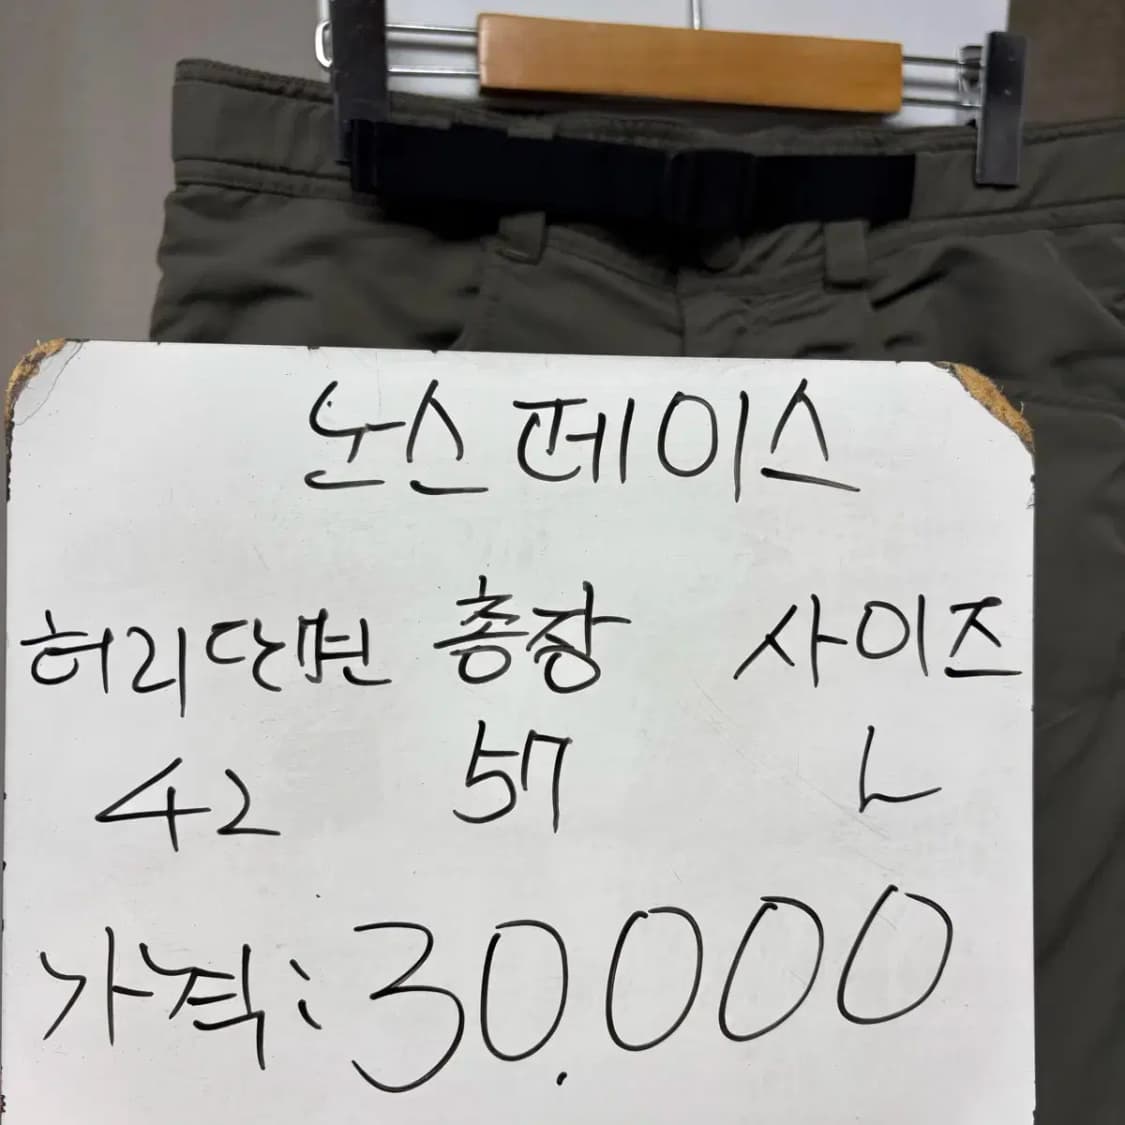 노스페이스
허리단면 총장 사이즈
42 57 L
가격: 30.000